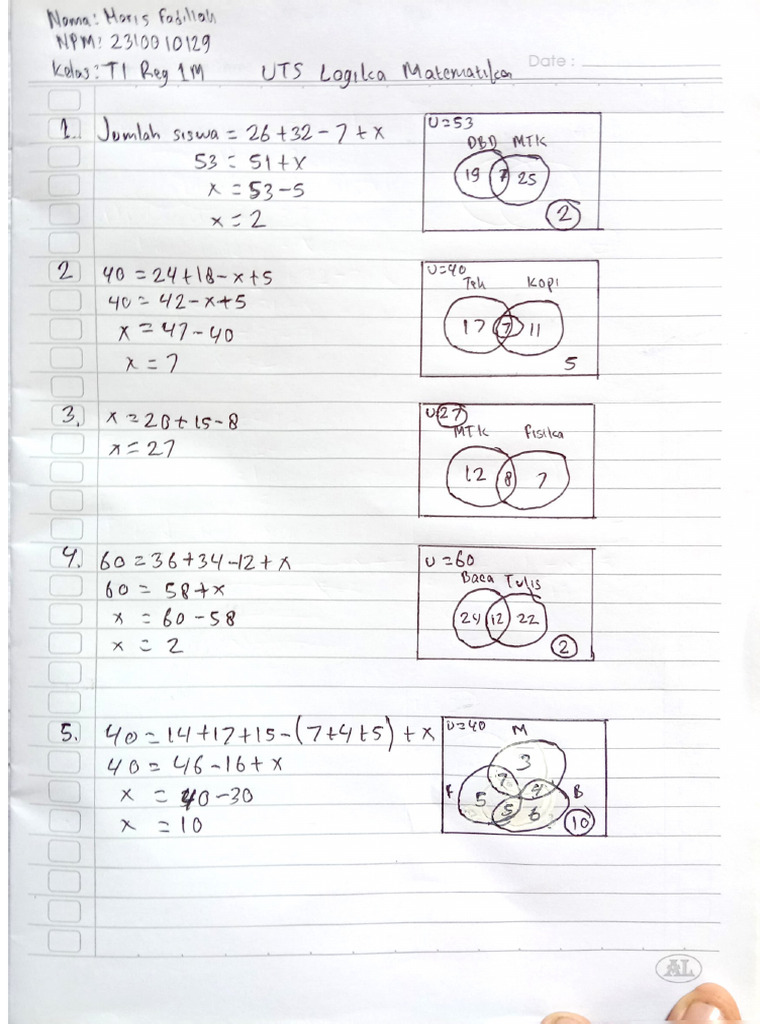 Nama: Haris Fadillah
NPM: 2310010129
Kelas: TI Reg 1M UTS Logika Matematika Date :
1. Jumlah siswa = 26 + 32 - 7 + x
53 = 51 + x
x = 53 - 5
x = 2
U = 53
DBD MTK
19 7 25
2
2 40 = 24 + 18 - x + 5
40 = 42 - x + 5
x = 47 - 40
x = 7
U = 40
Teh Kopi
17 7 11
5
3. x = 20 + 15 - 8
x = 27
U = 27
MTK Fisika
12 8 7
4. 60 = 36 + 34 - 12 + x
60 = 58 + x
x = 60 - 58
x = 2
U = 60
Baca Tulis
24 12 22
2
5. 40 = 14 + 17 + 15 - (7 + 4 + 5) + x
40 = 46 - 16 + x
x = 40 - 30
x = 10
U = 40
M
3
7 4
F 5 B
5 6 10
AL